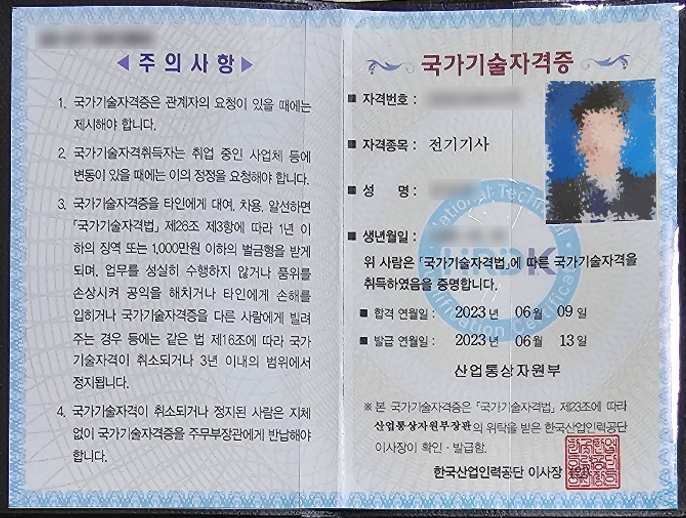 ◀ 주 의 사 항 ▶
1. 국가기술자격증은 관계자의 요청이 있을 때에는
제시해야 합니다.
2. 국가기술자격취득자는 취업 중인 사업체 등에
변동이 있을 때에는 이의 정정을 요청해야 합니다.
3. 국가기술자격증을 타인에게 대여, 차용, 알선하면
「국가기술자격법」 제26조 제3항에 따라 1년 이
하의 징역 또는 1,000만원 이하의 벌금형을 받게
되며, 업무를 성실히 수행하지 않거나 품위를
손상시켜 공익을 해치거나 타인에게 손해를
입히거나 국가기술자격증을 다른 사람에게 빌려
주는 경우 등에는 같은 법 제16조에 따라 국가
기술자격이 취소되거나 3년 이내의 범위에서
정지됩니다.
4. 국가기술자격이 취소되거나 정지된 사람은 지체
없이 국가기술자격증을 주무부장관에게 반납해야
합니다.
국가기술자격증
■ 자격번호 :
■ 자격종목 : 전기기사
■ 성 명 :
■ 생년월일 :
위 사람은 「국가기술자격법」에 따른 국가기술자격을
취득하였음을 증명합니다.
■ 합격 연월일 : 2023 년 06 월 09 일
■ 발급 연월일 : 2023 년 06 월 13 일
산업통상자원부
※ 본 국가기술자격증은 「국가기술자격법」 제23조에 따라
산업통상자원부장관의 위탁을 받은 한국산업인력공단
이사장이 확인 · 발급함.
한국산업인력공단 이사장
HRDK